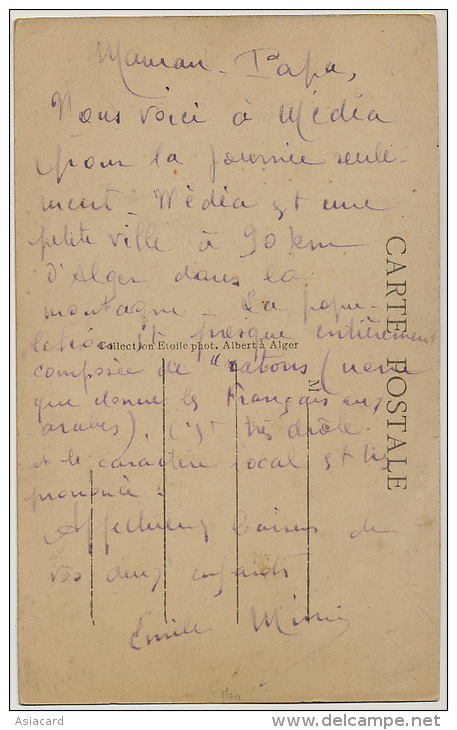 Maman - Papa,
Nous voici à Média
pour la journée seule-
ment - Médéa est une
petite ville à 90 km
d'Alger dans la
montagne - La popu-
lation est presque entièrement
Collection Etoile phot. Albert à Alger
composée de "ratons (nom
que donne les Français aux
arabes). C'est très drôle
et le caractère local est très
prononcé :
Affectueux baisers de
vos deux enfants
Emile
CARTE POSTALE
M
Asiacard
www.delcampe.net